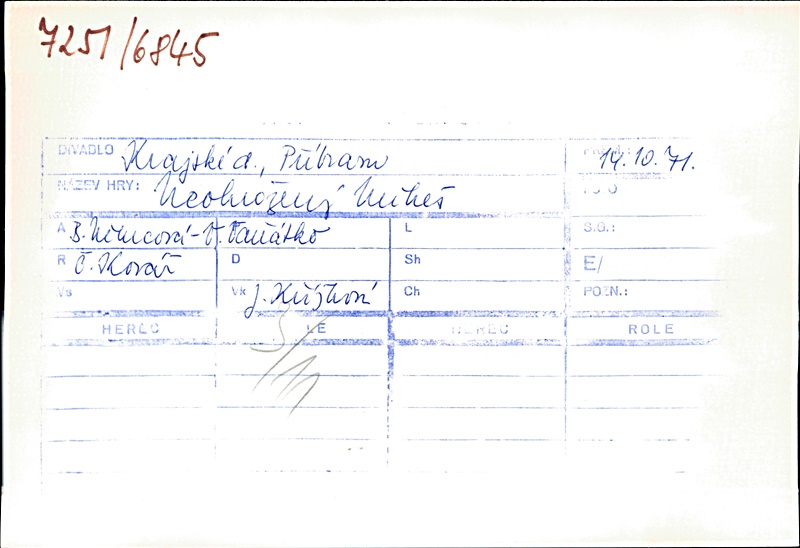 7251/6845
DIVADLO Krajské d., Příbram 14.10.71.
NÁZEV HRY: Neohrožený Mikeš
A B. Němcová - V. Vaňátko L S.G.:
R Č. Kovář D Sh E/
Vs Vk J. Ch POZN.:
HEREC LE HEREC ROLE